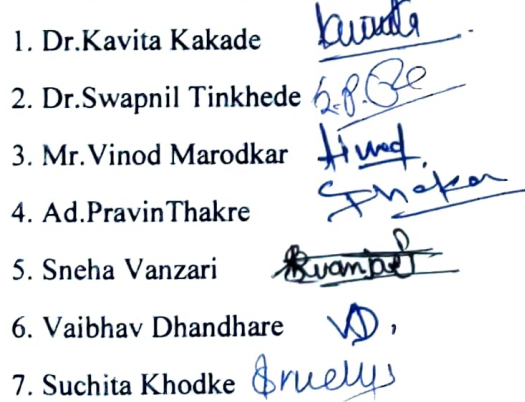 1. Dr.Kavita Kakade
2. Dr.Swapnil Tinkhede
3. Mr.Vinod Marodkar
4. Ad.PravinThakre
5. Sneha Vanzari
6. Vaibhav Dhandhare VD,
7. Suchita Khodke